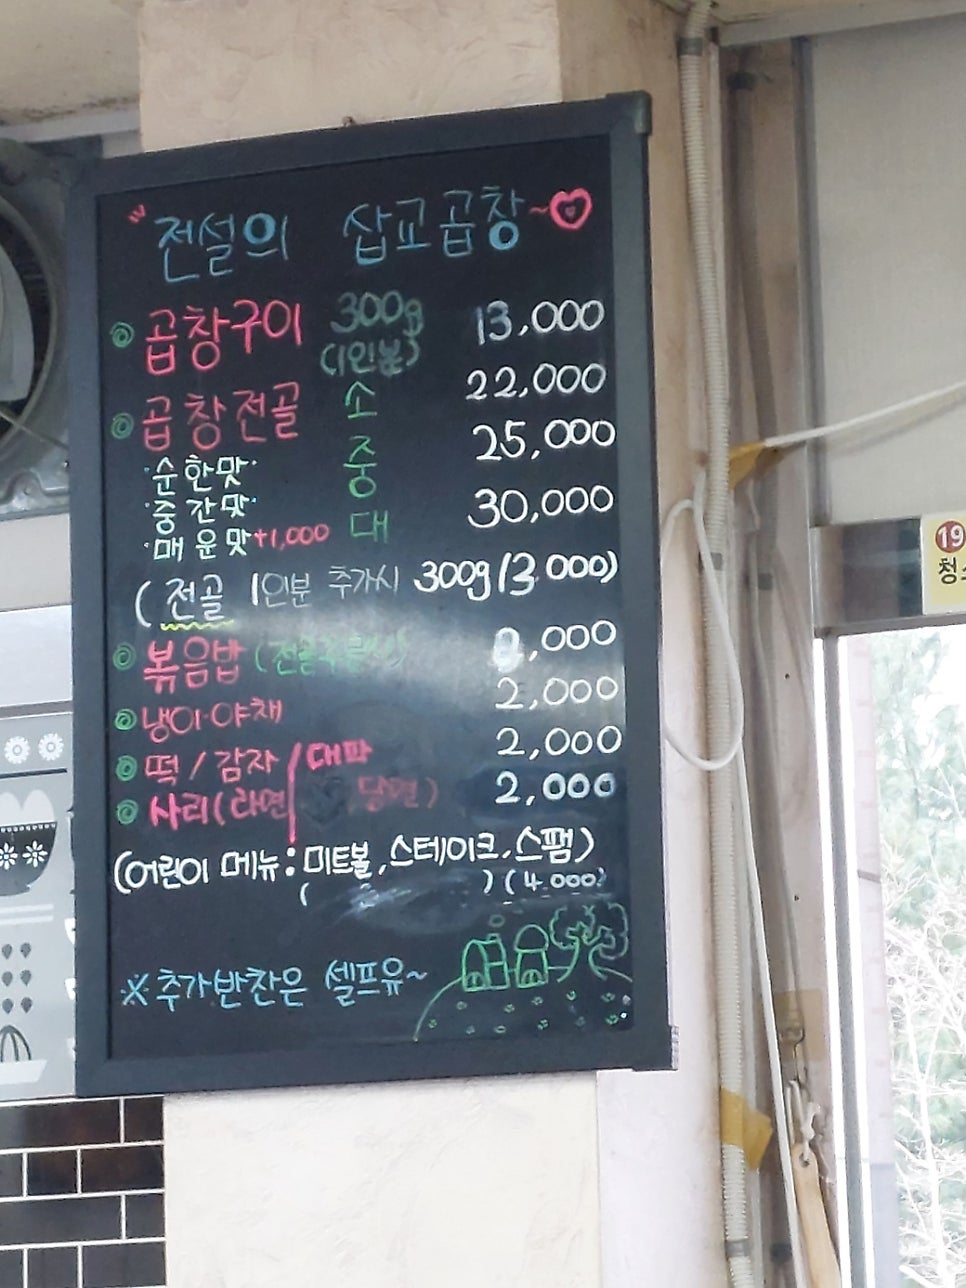 "전설의 삽교곱창~
곱창구이 300g 13,000
(1인분)
22,000
곱창전골 소
25,000
·순한맛· 중
·중간맛· 30,000
·매운맛+1,000 대
(전골 1인분 추가시 300g 13 000)
볶음밥 ,000
냉이·야채 2,000
떡/감자/대파 2,000
사리(라면 당면) 2,000
(어린이 메뉴: 미트볼, 스테이크, 스팸)
( ) (4.000)
※추가반찬은 셀프유~
19
청소